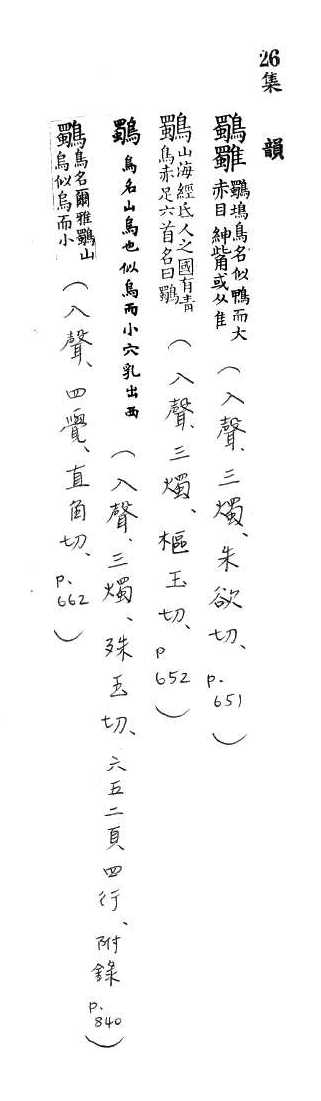 26集韻
鸀雡鸀䳓鳥名似鴨而大赤目紺觜角或从隹（入聲、三燭、朱欲切、p.651）
鸀山海經氐人之國有青鳥赤足六首名曰鸀（入聲、三燭、樞玉切、p652）
鸀鳥名山烏也似烏而小穴乳出西（入聲、三燭、殊玉切、六五二頁四行、附錄p.840）
鸀鳥名爾雅鸀山烏似烏而小（入聲、四覺、直角切、p.662）